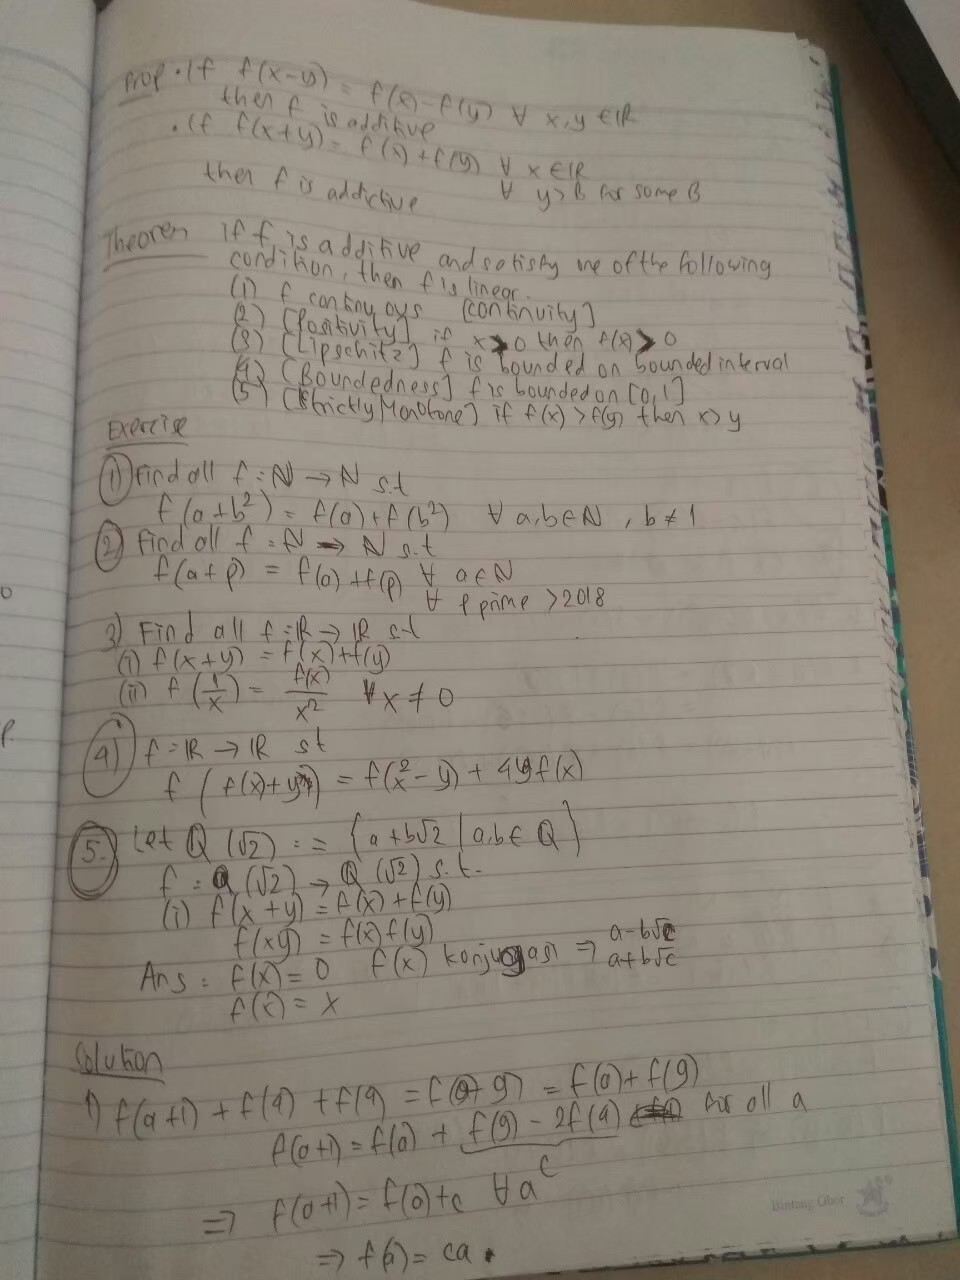 Prop. • If f(x-y) = f(x) - f(y) ∀ x,y ∈ ℝ
then f is additive
• If f(x+y) = f(x) + f(y) ∀ x ∈ ℝ
∀ y > B for some B
then f is addictive
Theorem If f is additive and satisfy one of the following
condition, then f is linear.
(1) f continuous [continuity]
(2) [Positivity] if x > 0 then f(x) > 0
(3) [Lipschitz] f is bounded on bounded interval
(4) [Boundedness] f is bounded on [0,1]
(5) [Strictly Monotone] if f(x) > f(y) then x > y
Exercise
1) Find all f : ℕ → ℕ s.t
f(a+b²) = f(a) + f(b²) ∀ a,b ∈ ℕ , b ≠ 1
2) Find all f : ℕ → ℕ s.t
f(a+p) = f(a) + f(p) ∀ a ∈ ℕ
∀ p prime > 2018
3) Find all f : ℝ → ℝ s.t
(i) f(x+y) = f(x) + f(y)
(ii) f(1/x) = f(x)/x² ∀ x ≠ 0
4) f : ℝ → ℝ st
f(f(x)+y) = f(x²-y) + 4yf(x)
5. Let ℚ(√2) := {a+b√2 | a,b ∈ ℚ}
f : ℚ(√2) → ℚ(√2) s.t.
(i) f(x+y) = f(x) + f(y)
f(xy) = f(x) f(y)
Ans : f(x) = 0 f(x) konjugasi ⇒ a-b√c
a+b√c
f(x) = x
Solution
1) f(a+1) + f(4) + f(4) = f(a+9) = f(a) + f(9)
f(a+1) = f(a) + f(9) - 2f(4) for all a
c
⇒ f(a+1) = f(a) + c ∀ a
⇒ f(a) = ca.
Bintang Obor